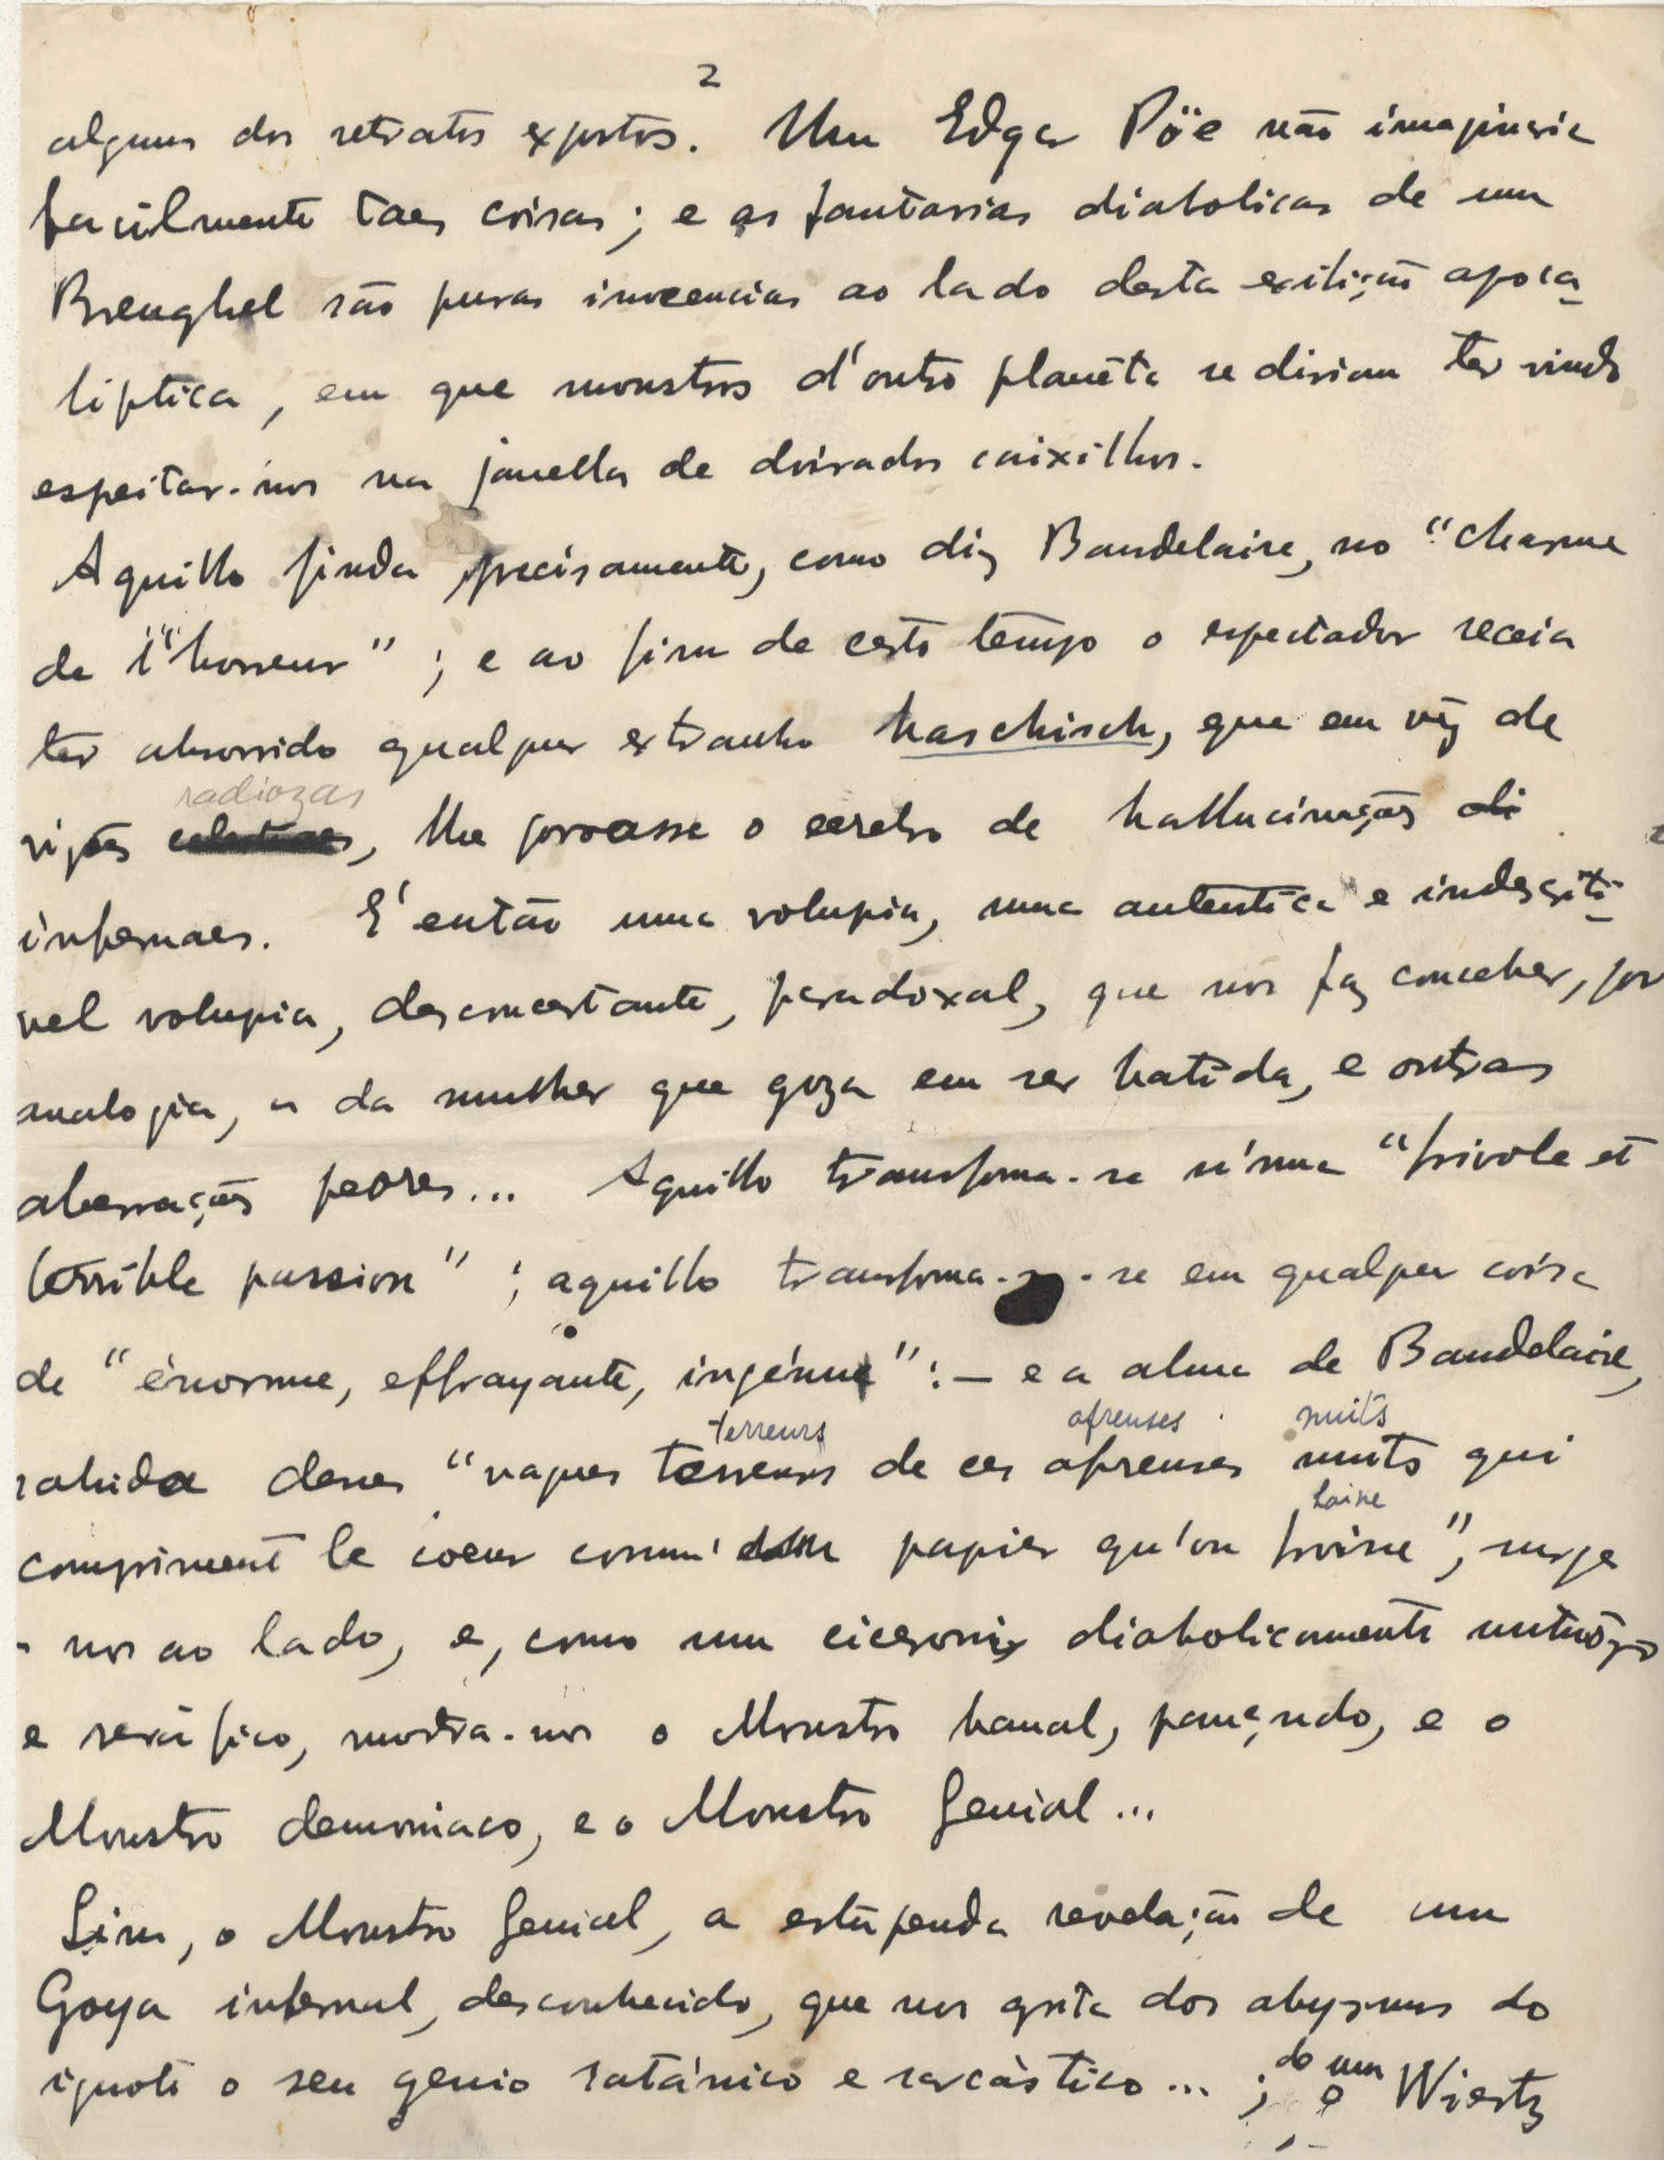 2
alguns dos retratos expostos. Um Edgar Pöe não imaginaria
facilmente taes coisas; e as fantasias diabolicas de um
Breughel são puras innocencias ao lado desta exibição apoca-
liptica, em que monstros d'outro planêta se diriam ter vindo
espeitar-nos na janella de doirados caixilhos.
Aquillo finda precisamente, como diz Baudelaire, no "charme
de l'"horreur"; e ao fim de certo tempo o espectador receia
ter absorvido qualquer extranho haschisch, que em vêz de
radiozas
visões, lhe povoasse o cerebro de hallucinações di
infernaes. E' então uma volupia, uma autentica e indescriti-
vel volupia, desconcertante, paradoxal, que nos faz conceber, por
analogia, a da mulher que goza em ser batida, e outras
aberrações peores... Aquillo transforma-se n'uma "frivole et
terrible passion"; aquillo transforma-se em qualquer coisa
de "énorme, effrayante, ingénue":— e a alma de Baudelaire,
terreurs afreuses nuits
sahida desses "vagues terreurs de ces afreuses nuits qui
compriment le coeur comm' un papier qu'on froisse", surge
-nos ao lado, e, como um cicerone diabolicamente untuôzo
e seráfico, mostra-nos o Monstro banal, pançudo, e o
Monstro demoniaco, e o Monstro Genial...
Sim, o Monstro Genial, a estupenda revelação de um
Goya infernal, desconhecido, que nos grita dos abysmos do
ignoto o seu genio satánico e sarcàstico... ;
de um
o Wiertz